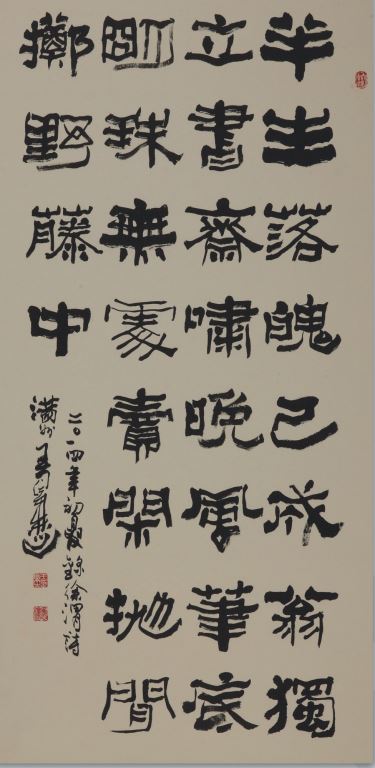 半生落魄已成翁獨
立書齋嘯晚風筆底
明珠無處賣閑拋閒
擲野藤中
二〇一四年初夏錄徐渭詩